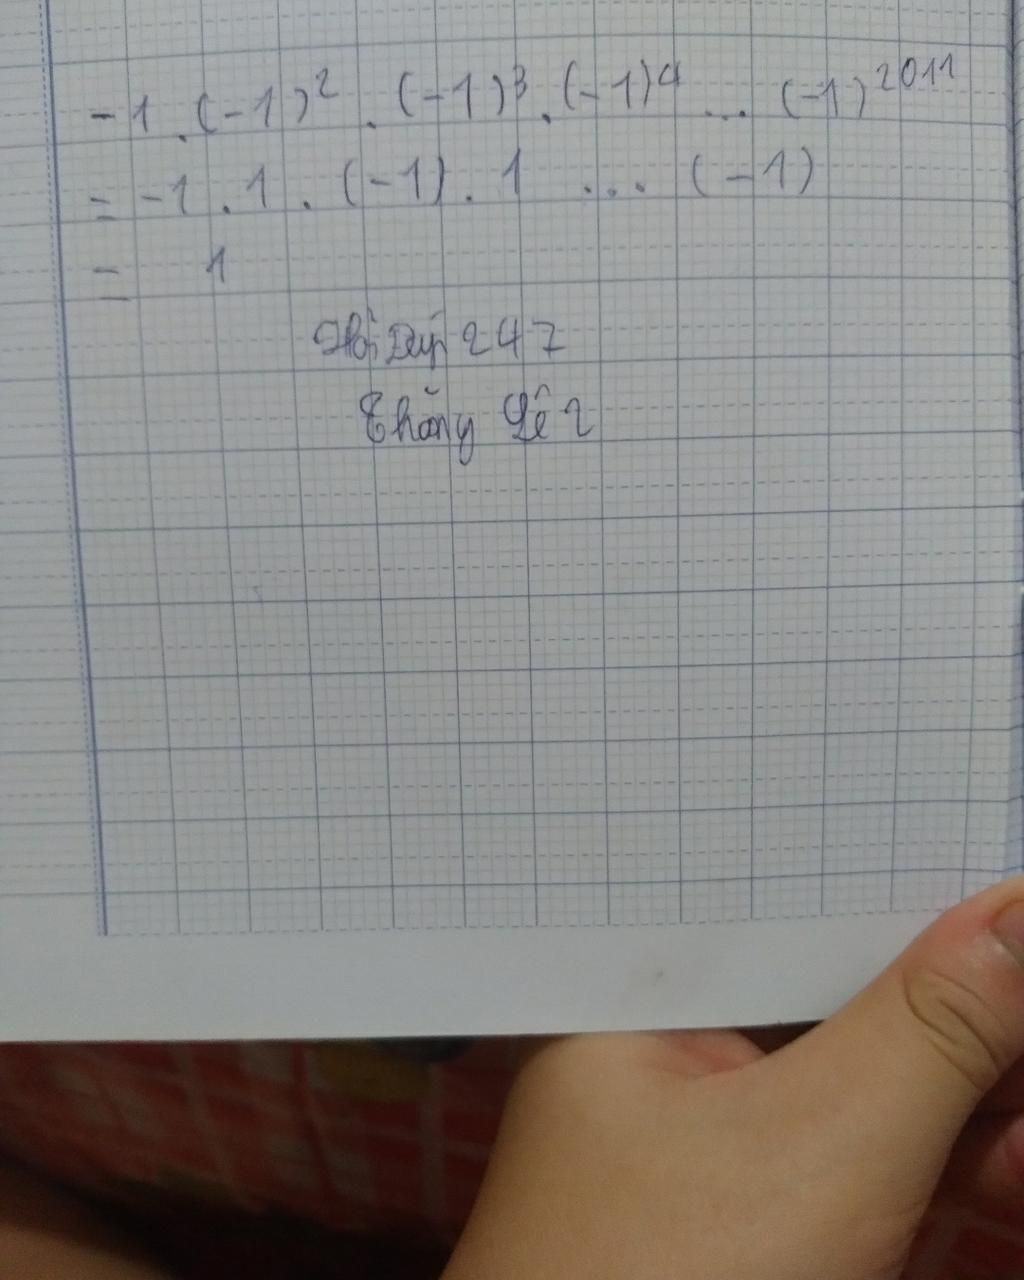 -1 . (-1)² . (-1)³ . (-1)⁴ ... (-1)²⁰¹¹
= -1 . 1 . (-1) . 1 ... (-1)
= 1
Hỏi Đáp 247
Thắng Lê 2